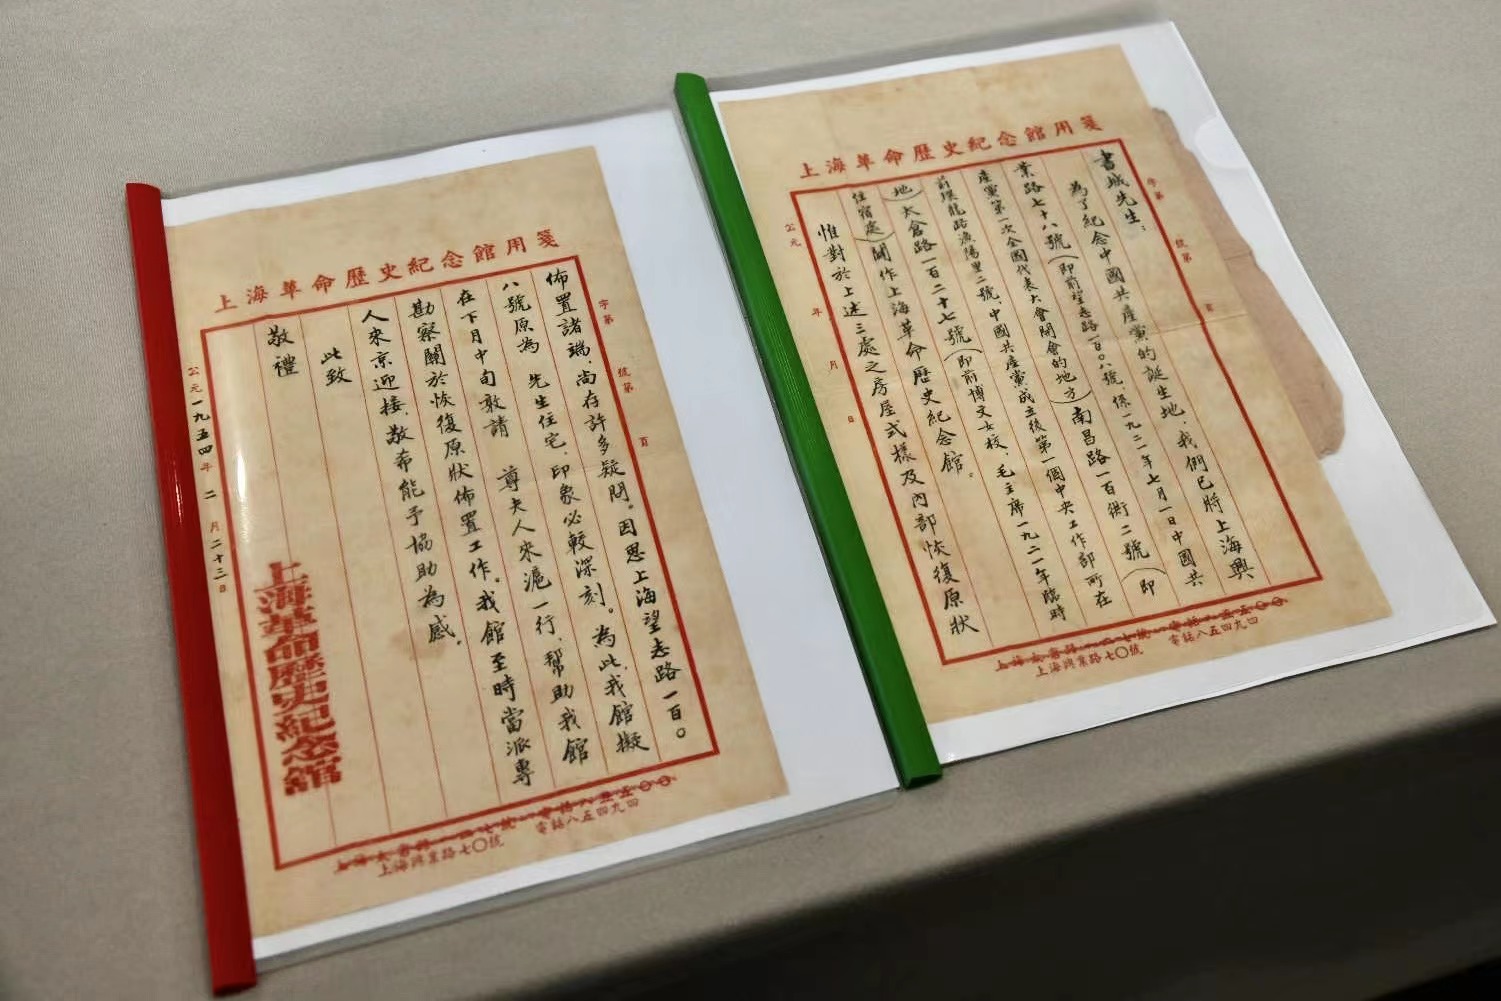 上海革命歷史紀念館用箋
字第　號第　頁
書城先生：
為了紀念中國共產黨的誕生地，我們已將上海興
業路七十八號（即前望志路一百〇八號係一九二一年七月一日中國共
產黨第一次全國代表大會開會的地方）南昌路一百衖二號（即
前環龍路漁陽里二號，中國共產黨成立後第一個中央工作部所在
地）太倉路一百二十七號（即前博文女校，毛主席一九二一年臨時
住宿處）闢作上海革命歷史紀念館。
惟對於上述三處之房屋式樣及內部恢復原狀
公元　年　月　日
上海興業路七〇號　電話八五四九四
上海革命歷史紀念館用箋
字第　號第　頁
佈置諸端，尚存許多疑問。因思上海望志路一百〇
八號原為　先生住宅，印象必較深刻。為此，我館擬
在下月中旬敦請　尊夫人來滬一行，幫助我館
勘察關於恢復原狀佈置工作。我館至時當派專
人來京迎接，敬希能予協助為感。
此致
敬禮
上海革命歷史紀念館
公元一九五四年二月二十三日
上海興業路七〇號　電話八五四九四